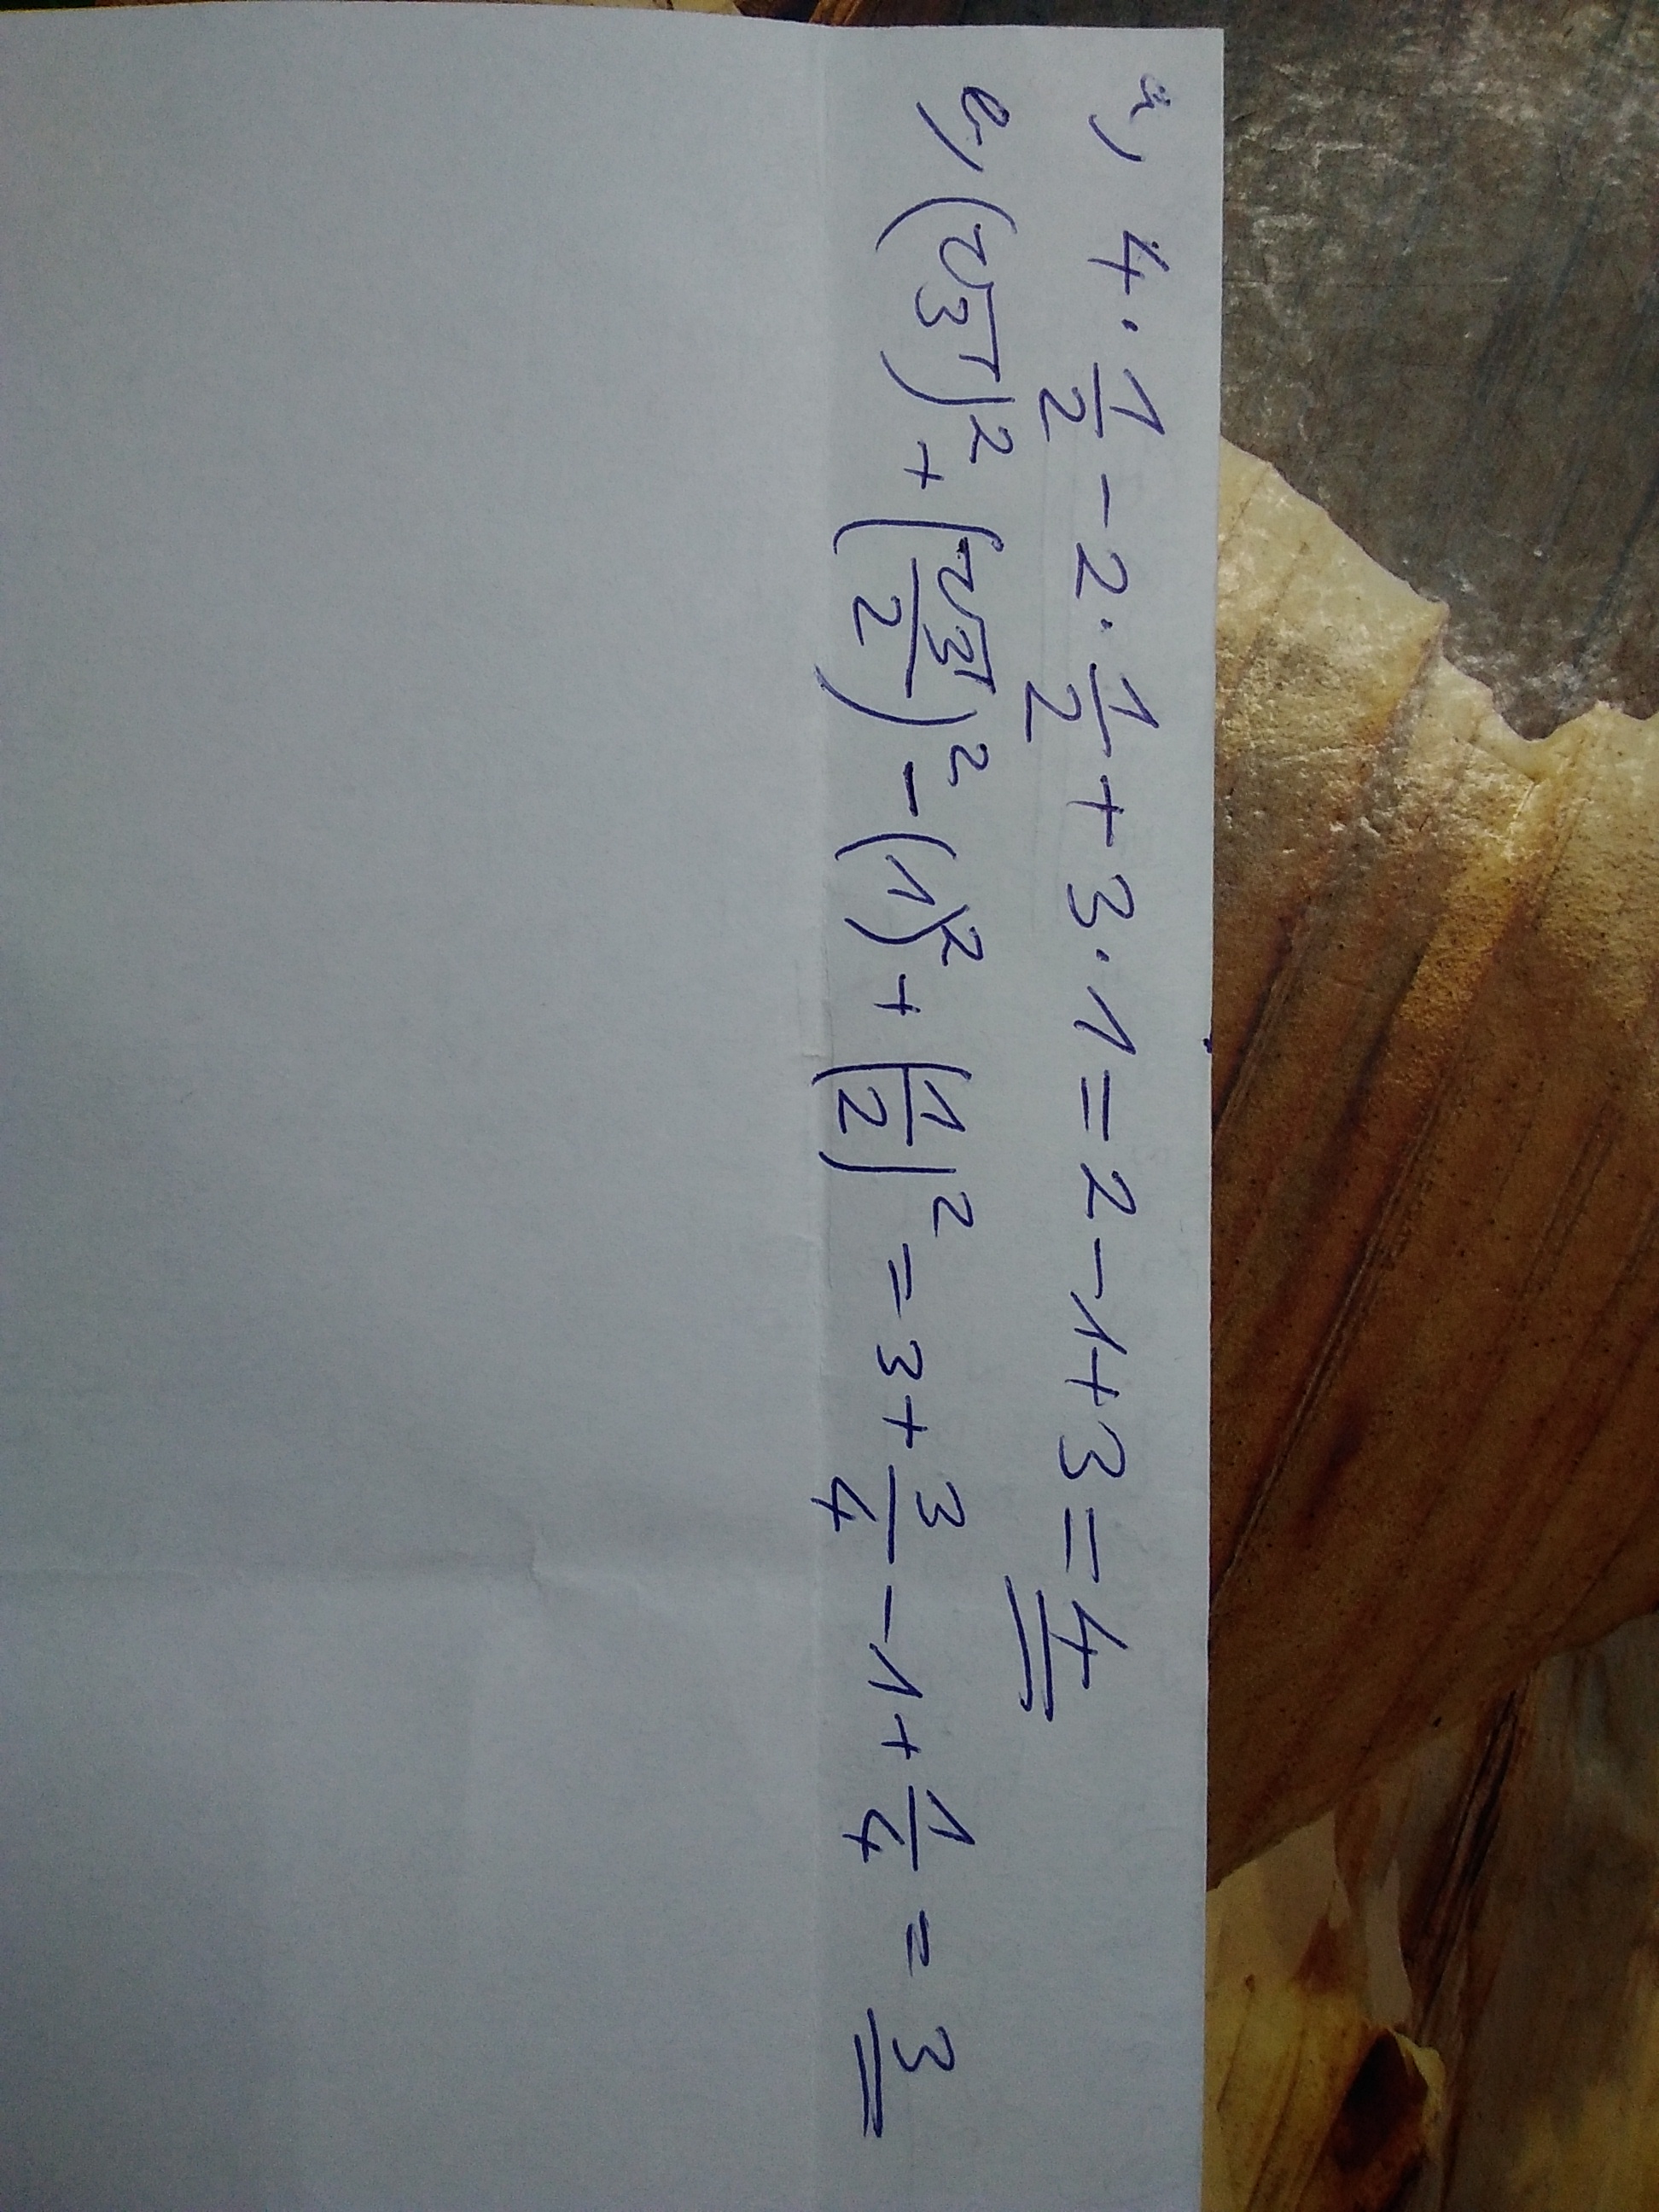 a, 4 · 1/2 - 2 · 1/2 + 3 · 1 = 2 - 1 + 3 = 4
b, (√3)² + (√3/2)² - (1)² + (1/2)² = 3 + 3/4 - 1 + 1/4 = 3